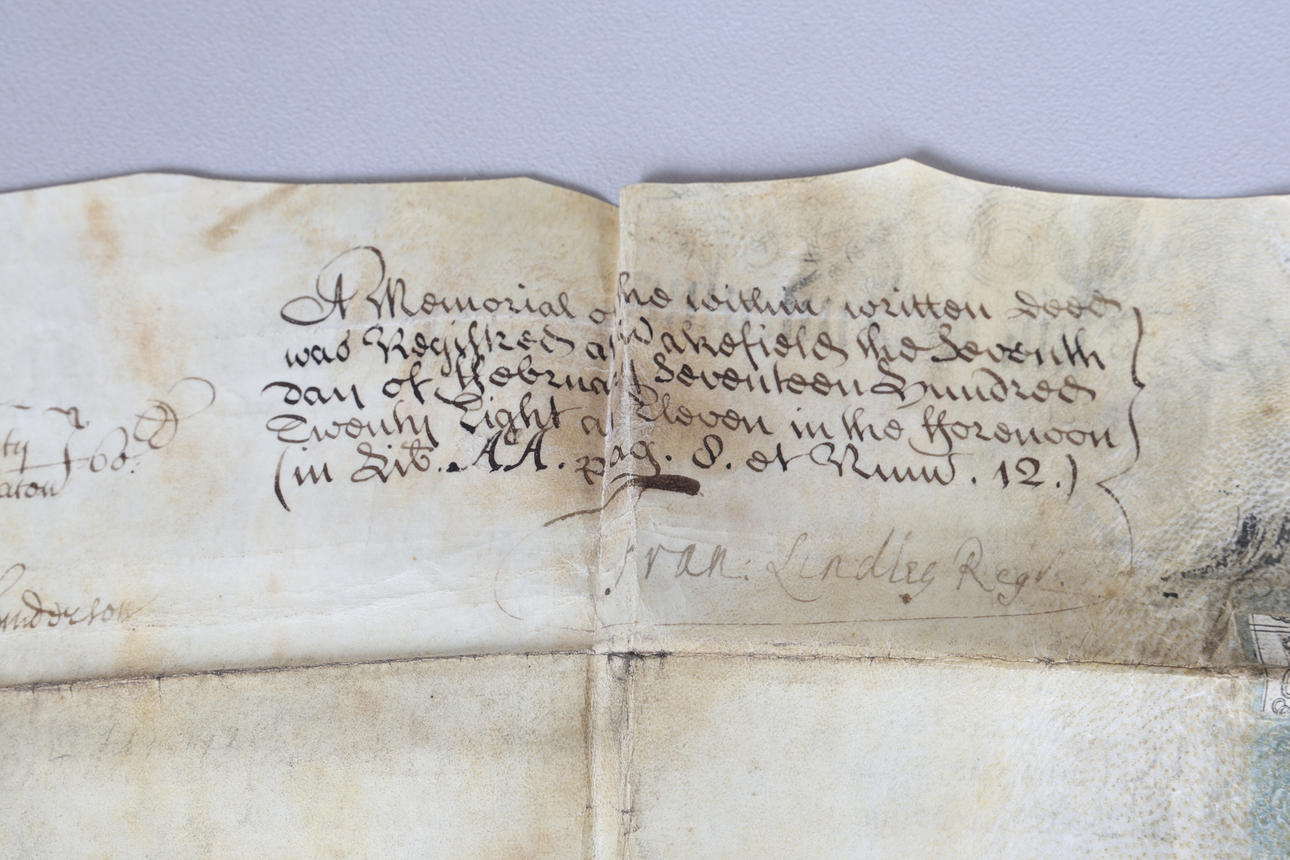 A Memorial of the within written deed
was Registred at Wakefield the Seventh
Day of February Seventeen Hundred
Twenty Eight at Eleven in the fforenoon
(in Lib. AA. pag. 8. et Num. 12.)
Fran: Lindley Regr.